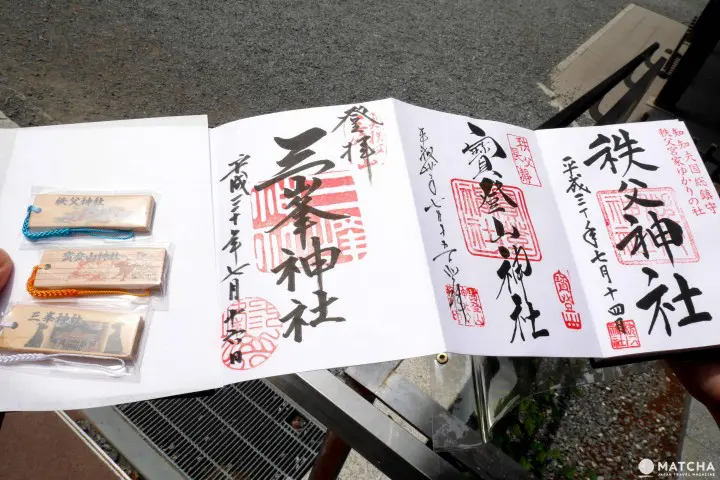 知知夫国総鎮守
秩父宮家ゆかりの社
秩父神社
平成三十年七月十四日
寳登山神社
登拝
三峯神社
平成三十年七月十六日
秩父神社
寳登山神社
三峯神社
MATCHA
JAPAN TRAVEL MAGAZINE